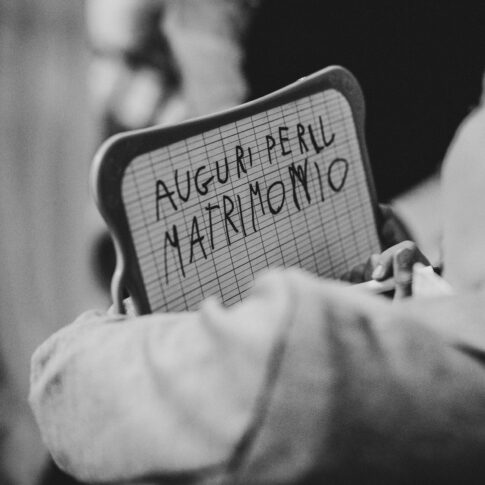 AUGURI PERIL
MATRIMONIO